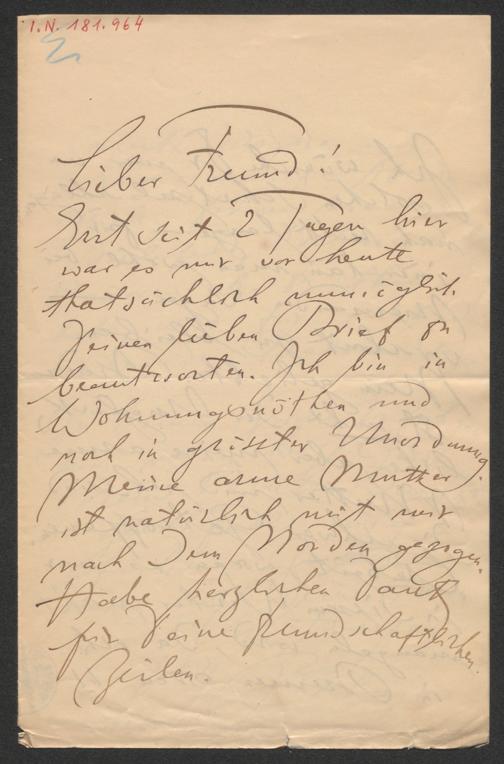 I.N. 181.964
Lieber Freund!
Erst seit 2 Tagen hier
war es mir vor heute
thatsächlich unmöglich,
Deinen lieben Brief zu
beantworten. Ich bin in
Wohnungsnöthen und
noch in grösster Unordnung.
Meine arme Mutter
ist natürlich mit mir
nach dem Norden gezogen.
Habe herzlichen Dank
für Deine freundschaftlichen
Zeilen.